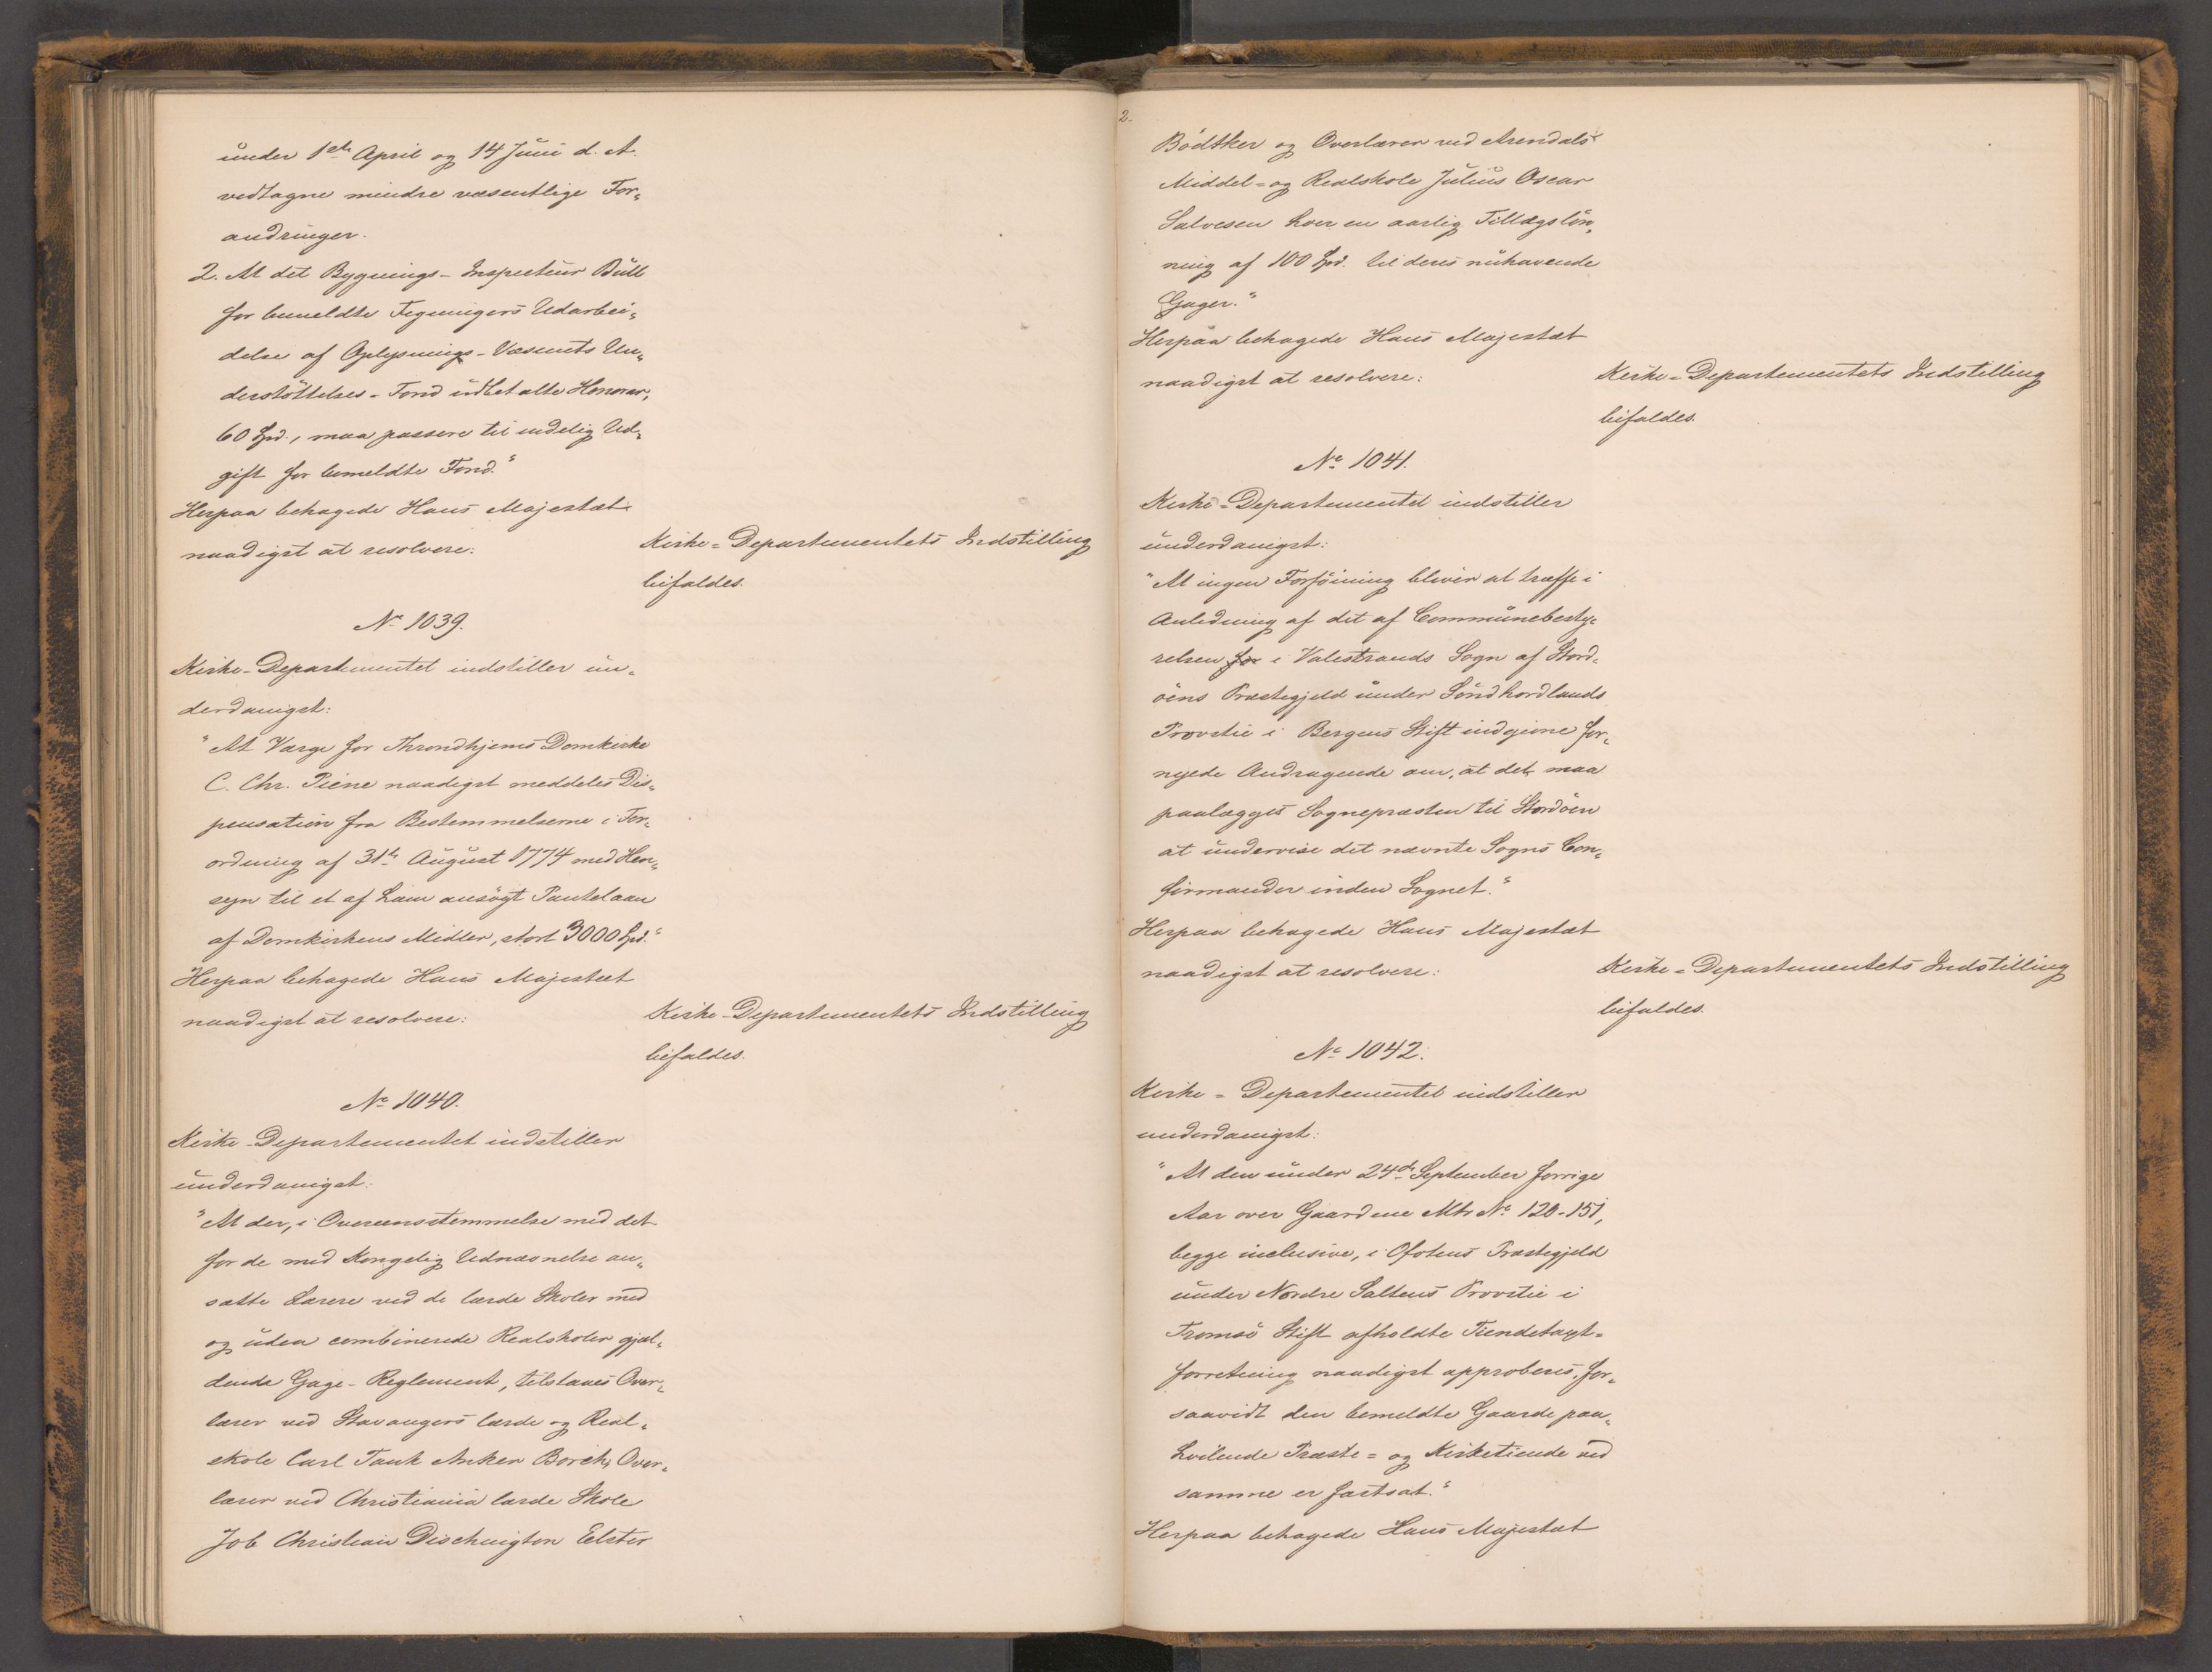 under 1ste April og 14 Juni d. A.
vedtagne mindre væsentlige For„
andringer.
2. At det Bygnings-Inspecteur Büll
for bemeldte Tegningers Udarbei„
delse af Oplysnings-Væsenets Un„
derstöttelses-Fond udbetalte Honorar,
60 Spd., maa passere til endelig Ud„
gift for bemeldte Fond."
Herpaa behagede Hans Majestæt
naadigst at resolvere:
Kirke-Departementets Indstilling
bifaldes.
No 1039.
Kirke-Departementet indstiller un„
derdanigst:
"At Værge for Throndhjems Domkirke
C. Chr. Piene naadigst meddeles Dis„
pensation fra Bestemmelserne i For„
ordning af 31te August 1774 med Hen„
syn til et af ham ansögt Pantelaan
af Domkirkens Midler, stort 3000 Spd."
Herpaa behagede Hans Majestæt
naadigst at resolvere:
Kirke-Departementets Indstilling
bifaldes.
No 1040.
Kirke-Departementet indstiller
underdanigst:
"At der, i Overeensstemmelse med det
for de med Kongelig Udnævnelse an„
satte Lærere ved de lærde Skoler med
og uden combinerede Realskoler gjæl„
dende Gage-Reglement, tilstaaes Over„
lærer ved Stavangers lærde og Real„
skole Carl Tank Anker Borch, Over„
lærer ved Christiania lærde Skole
Job Christian Dischington Elster
2.
Bödtker og Overlærer ved Arendals
Middel- og Realskole Julius Oscar
Salvesen hver en aarlig Tillægslön„
ning af 100 Spd. til deres nuhavende
Gager."
Herpaa behagede Hans Majestæt
naadigst at resolvere:
Kirke-Departementets Indstilling
bifaldes.
No 1041.
Kirke-Departementet indstiller
underdanigst:
"At ingen Forföining bliver at træffe i
Anledning af det af Communebesty„
relsen for i Valestrands Sogn af Stord„
öens Præstegjeld under Söndhordlands
Provstie i Bergens Stift indgivne for„
nyede Andragende om, at det maa
paalægges Sognepræsten til Stordöen
at undervise det nævnte Sogns Con„
firmander inden Sognet."
Herpaa behagede Hans Majestæt
naadigst at resolvere:
Kirke-Departementets Indstilling
bifaldes.
No 1042.
Kirke-Departementet indstiller
underdanigst:
"At den under 24de September forrige
Aar over Gaardene Mtr. No 120-151,
begge inclusive, i Ofotens Præstegjeld
under Nordre Saltens Provstie i
Tromsö Stift afholdte Tiendetaxt-
forretning naadigst approberes, for„
saavidt den bemeldte Gaarde paa„
hvilende Præste- og Kirketiende ved
samme er fastsat."
Herpaa behagede Hans Majestæt